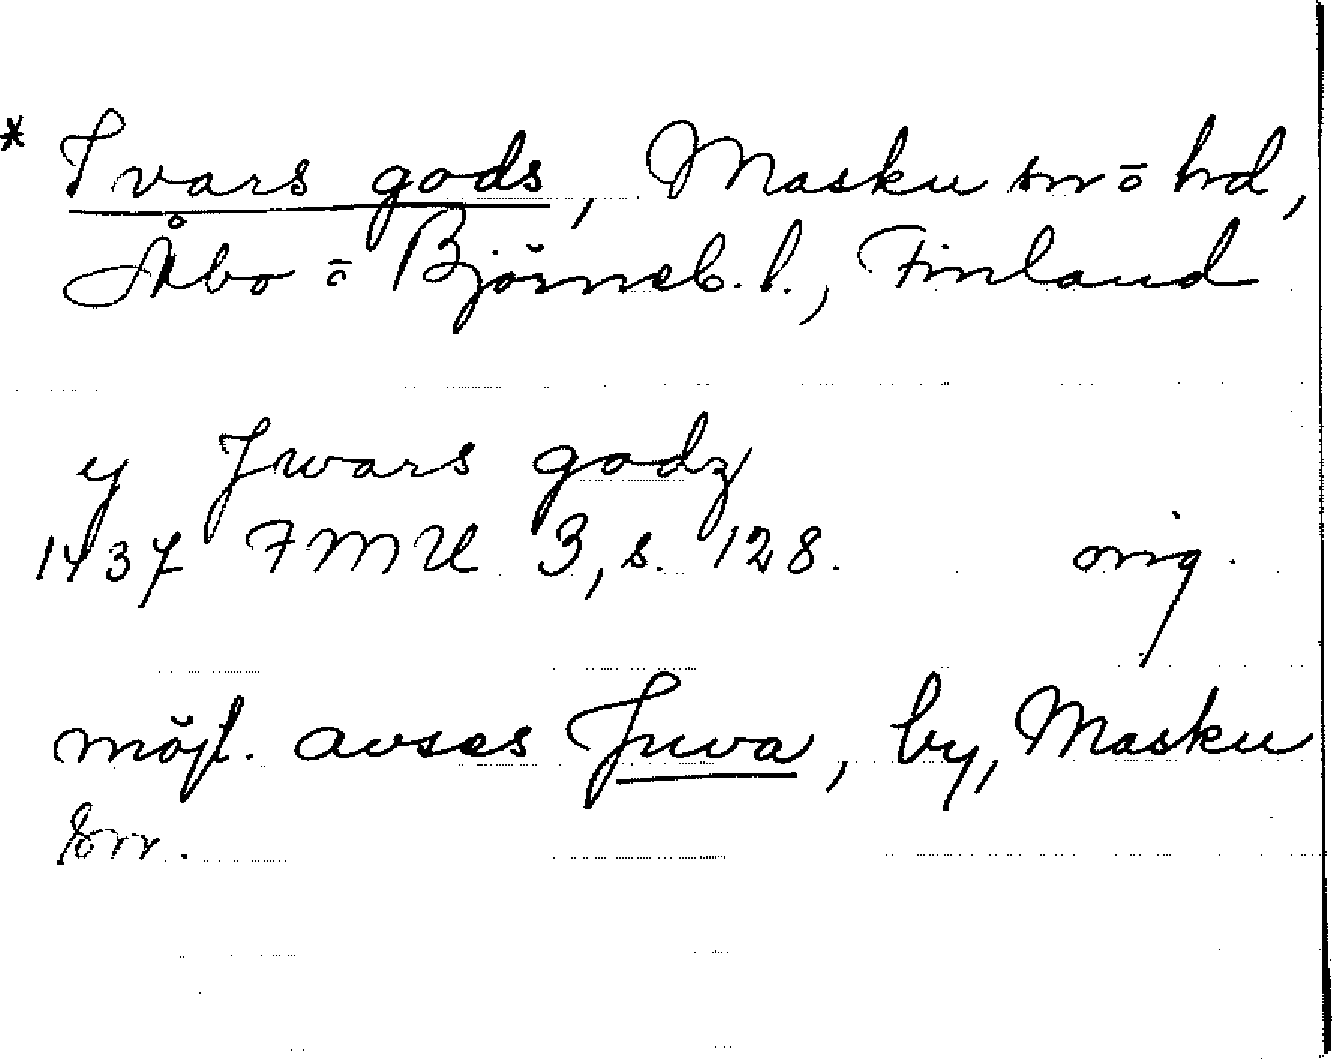 * Ivars gods, Masku sn o hd,
Åbo o Björneb. l., Finland
y Jwars godz
1437 FMU 3, s. 128. orig.
möjl. avses Juva, by, Masku
sn.